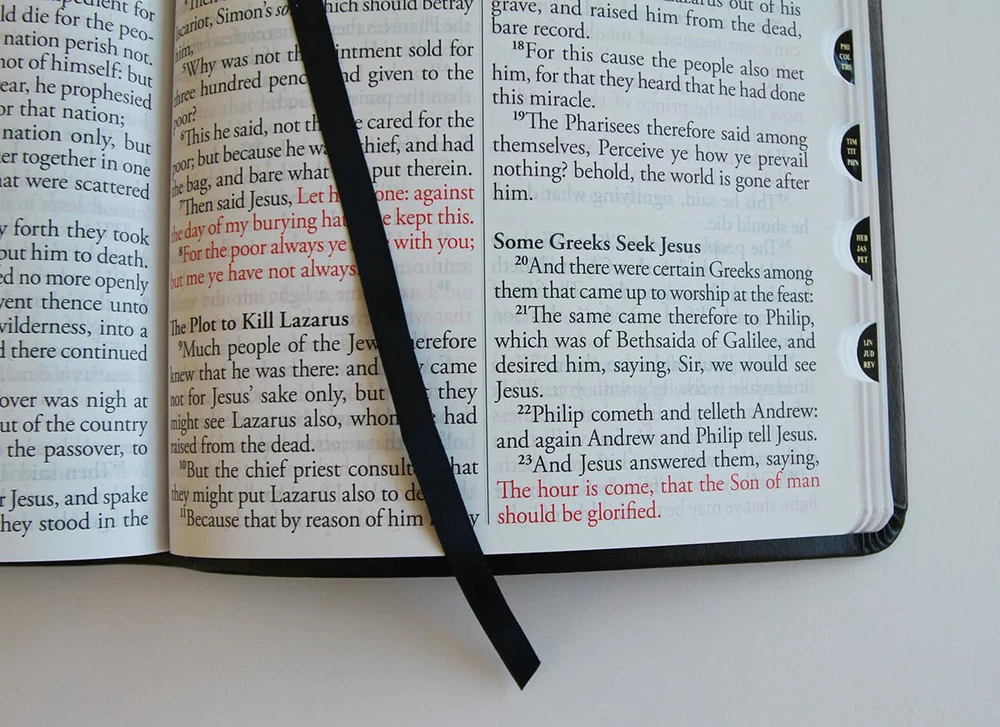 pedient for
ld die for the peo-
nation perish not.
not of himself: but
ear, he prophesied
or that nation;
nation only, but
er together in one
at were scattered
y forth they took
put him to death.
d no more openly
vent thence unto
wilderness, into a
d there continued
over was nigh at
ut of the country
the passover, to
r Jesus, and spake
hey stood in the
scariot, Simon's so hich should betray
him,
5Why was not th intment sold for
three hundred penc nd given to the
poor?
6This he said, not th e cared for the
poor; but because he wa hief, and had
the bag, and bare what put therein.
7Then said Jesus, Let h one: against
the day of my burying hat e kept this.
8For the poor always ye with you;
but me ye have not always.
The Plot to Kill Lazarus
9Much people of the Jew herefore
knew that he was there: and y came
not for Jesus' sake only, but they
might see Lazarus also, whom had
raised from the dead.
10But the chief priest consult hat
they might put Lazarus also to de
11Because that by reason of him y
Lazarus out of his
grave, and raised him from the dead,
bare record.
18For this cause the people also met
him, for that they heard that he had done
this miracle.
19The Pharisees therefore said among
themselves, Perceive ye how ye prevail
nothing? behold, the world is gone after
him.
Some Greeks Seek Jesus
20And there were certain Greeks among
them that came up to worship at the feast:
21The same came therefore to Philip,
which was of Bethsaida of Galilee, and
desired him, saying, Sir, we would see
Jesus.
22Philip cometh and telleth Andrew:
and again Andrew and Philip tell Jesus.
23And Jesus answered them, saying,
The hour is come, that the Son of man
should be glorified.
PHI
COL
THS
TIM
TIT
PHN
HEB
JAS
PET
1JN
JUD
REV